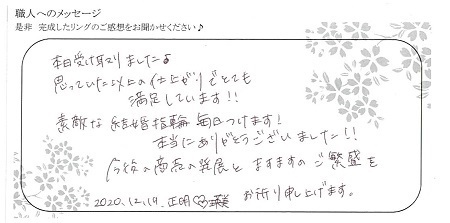 職人へのメッセージ
是非 完成したリングのご感想をお聞かせください♪
本日受け取りました♪
思っていた以上の仕上がりでとても
満足しています!!
素敵な結婚指輪毎日つけます!
本当にありがとうございました!!
今後の商売の発展とますますのご繁盛を
お祈り申し上げます。
2020.12.19. 正明♡